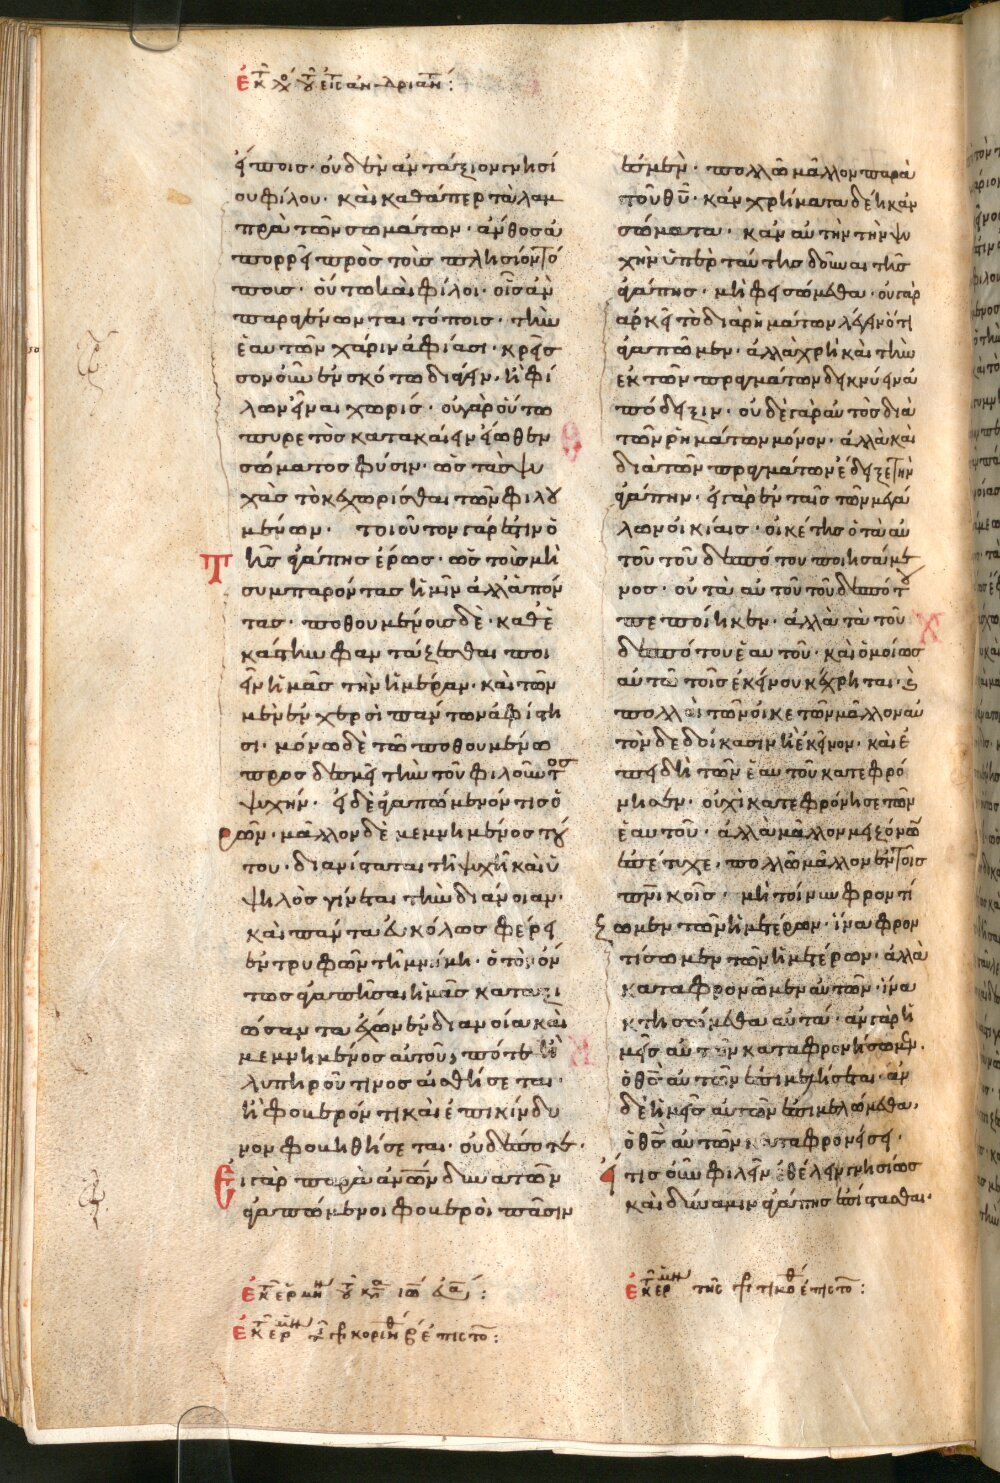 ἐκ τοῦ εἰς ἀνδριαν:
ἔποις· οὐδὲν ἀντάξιον γνησί
ου φίλου· καὶ καθάπερ τὰ λαμ
πρὰ τῶν σωμάτων· ἄνθος ἀ
πορρεῖ πρὸς τοῖς πλησίον τό
ποις· οὕτω καὶ φίλοι· οἷς ἂν
παραγένωνται τόποις· τὴν
ἑαυτῶν χάριν ἀφιᾶσι· κρεῖσ
σον οὖν ἐν σκότω διάγειν· ἢ φί
λων εἶναι χωρίς· οὐ γὰρ οὕτω
πυρετὸς κατακαίειν εἴωθεν
σώματος φύσιν· ὡς τὰς ψυ
χὰς τὸ κεχωρίσθαι τῶν φιλου
μένων· τοιοῦτον γάρ ἐστιν ὁ
τῆς ἀγάπης ἔρως· ὡς τοῖς μὴ
συμπαρόντας ἡμῖν ἀλλ' ἀπόν
τας· ποθουμένοις δὲ· καθ' ἑ
κάστην φαντάζεσθαι ποι
εῖν ἡμᾶς τὴν ἡμέραν· καὶ τῶν
μὲν ἐν χερσὶ πάντων ἀφίστη
σι· μόνω δὲ τῶ ποθουμένω
προσδεσμεῖ τὴν τοῦ φιλοῦντος
ψυχήν· ὁ δὲ ἀγαπώμενόν τις ὁ
ρῶν· μᾶλλον δὲ μεμνημένος τού
του· διανίσταται τῆ ψυχῆ καὶ ὑ
ψηλὸς γίνεται τὴν διάνοιαν·
καὶ πάντα εὐκόλως φέρει
ἐντρυφῶν τῆ μνήμη· ὁ τὸν ὄν
τως ἀγαπῆσαι ἡμᾶς καταξι
ώσαντα ἔχων ἐν διανοία καὶ
μεμνημένος αὐτοῦ, πότε ἢ
λυπηροῦ τινος αἰσθήσεται·
ἢ φοβερόν τι καὶ ἐπικίνδυ
νον φοβηθήσεται· οὐδέποτε·
Εἰ γὰρ παρὰ ἀνων δυνατῶν
ἀγαπώμενοι φοβεροὶ πᾶσιν
ἐσμὲν· πολλῶ μᾶλλον παρὰ
τοῦ θυ· κἂν χρήματα δέη κἂν
σώματα· κἂν αὐτὴν τὴν ψυ
χὴν ὑπὲρ ταύτης δοῦναι τῆς
ἀγάπης· μὴ φεισώμεθα· οὐ γὰρ
ἀρκεῖ τὸ διὰ ῥημάτων λέγειν ὅτι
ἀγαπῶμεν· ἀλλὰ χρὴ καὶ τὴν
ἐκ τῶν πραγμάτων δεικνύειν ἀ
πόδειξιν· οὐδὲ γὰρ αὐτὸς διὰ
τῶν ῥημάτων μόνον· ἀλλὰ καὶ
διὰ τῶν πραγμάτων ἔδειξε τὴν
ἀγάπην· εἰ γὰρ ἐν ταῖς τῶν μεγά
λων οἰκίαις· οἰκέτης ὁ τὰ αὐ
τοῦ τοῦ δεσπότου ποιησάμε
νος· οὐ τὰ αὐτοῦ τοῦ δεσπότου
πεποίηκεν· ἀλλὰ τὰ τοῦ
δεσπότου ἑαυτοῦ· καὶ ὁμοίως
αὐτῶ τοῖς ἐκείνου κέχρηται· καὶ
πολλοὶ τῶν οἰκετῶν μᾶλλον αὐ
τὸν δεδοίκασιν ἢ ἐκεῖνον· καὶ ἐ
πειδὴ τῶν ἑαυτοῦ κατεφρό
νησεν· οὐχὶ κατεφρόνησε τῶν
ἑαυτοῦ· ἀλλὰ μᾶλλον μειζόνων
ἐπέτυχε, πολλῶ μᾶλλον ἐν τοῖς
πνικοῖς· μὴ τοίνυν φροντί
ζωμεν τῶν ἡμετέρων· ἵνα φρον
τίσωμεν τῶν ἡμετέρων· ἀλλὰ
καταφρονῶμεν αὐτῶν· ἵνα
κτησώμεθα αὐτά· ἂν γὰρ ἡ
μεῖς αὐτῶν καταφρονήσωμεν·
ὁ θς αὐτῶν ἐπιμελήσεται· ἂν
δὲ ἡμεῖς αὐτῶν ἐπιμελώμεθα,
ὁ θς αὐτῶν καταφρονήσει·
εἴ τις οὖν φιλεῖν ἐθέλει γνησίως
καὶ δύναμιν ἀγάπης ἐπίστασθαι·